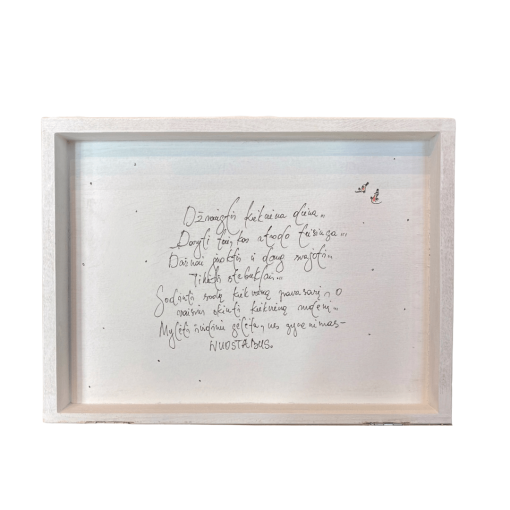 Džiaugtis kiekviena diena..
Daryti tai, kas atrodo teisinga...
Dažnai juoktis ir daug svajoti..
Tikėti stebuklais...
Sodinti sodą kiekvieną pavasarį, o
vaisius skinti kiekvieną rudenį..
Mylėti širdimi, nes gyvenimas-
NUOSTABUS.